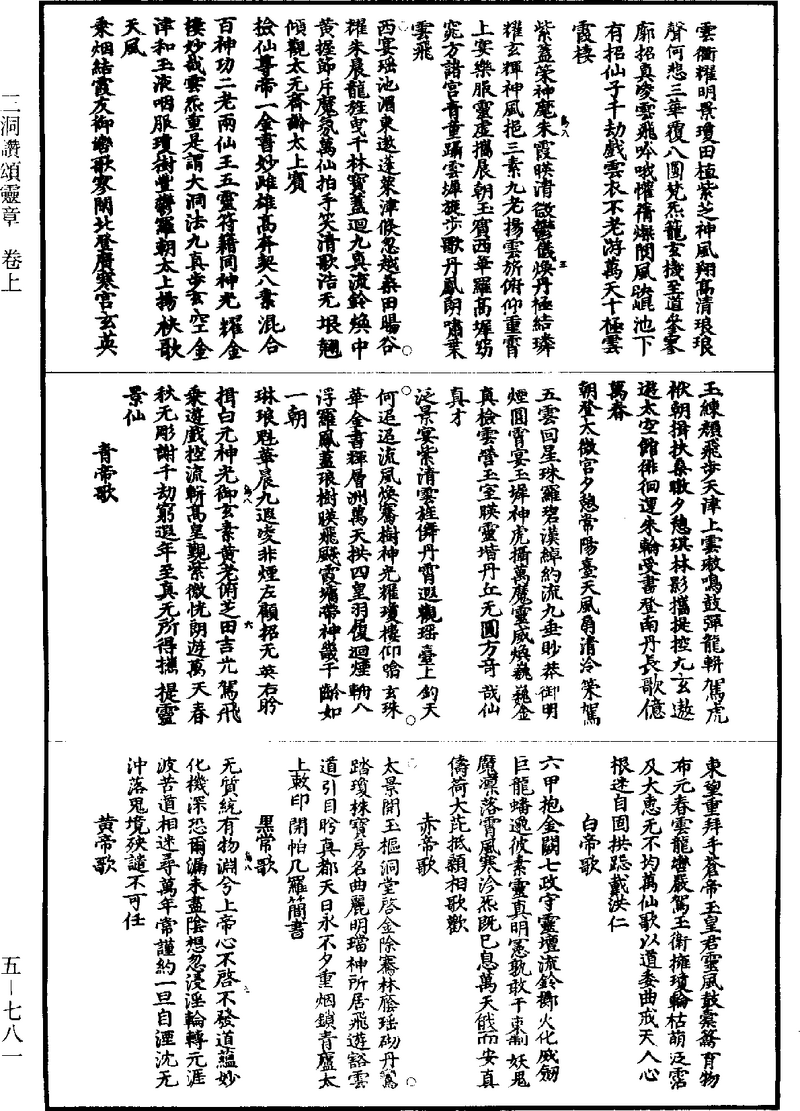 三洞讚頌靈章　卷上
五—七八一
雲衢耀明景瓊田植紫芝神風翔高清琅琅
聲何悲三華覆八圓梵炁籠玄機至道參寥
廓招真凌雲飛吟哦懼蒨燦閬風映崐池下
有招仙子千劫戲雲衣不老游萬天十極雲
霞棲
紫蓋策神魔朱霞映清微鬱儀煥丹極結璘
耀玄輝神風挹三素九老揚雲旂俯仰重霄
上宴樂服靈虛攜晨朝玉賓西華羅高墀窈
窕方諸宮青童躡雲墀旋步歌丹鳳朗嘯葉
雲飛
西宴瑶池湄東遨蓬萊津倐忽越桑田暘谷
耀朱晨龍旌曳千林寳蓋迴九真流鈴煥中
黄握節斥魔氛萬仙拍手笑清歌浩无垠翹
傾觀太无齊齡太上賓
檢仙尊帝一金書妙雌雄高奔契八素混合
百神功二老兩仙王五靈符籍同神光耀金
樓妙哉雲炁重是謂大洞法九真步玄空金
津和玉液咽服瓊樹豐鬱羅朝太上揚袂歌
天風
乘烟結霞友御轡歌寥閑北登廣寒宫玄英
玉練顏飛步天津上雲璈鳴鼓彈龍輧駕虎
檄朝揖扶桑暾夕憩琪林影攜提控九玄遨
遊太空館徘徊運朱輪受書登南丹長歌億
萬春
朝登太微宮夕憩常陽臺天風扇清泠策駕
五雲回星珠羅碧漢綽約流九垂眇莽御明
煙圓霄宴玉墀神虎攝萬魔靈威煥巍巍金
真檢雲營玉室暎靈堦丹丘无圓方奇哉仙
真才
泛景宴紫清雲旌儛丹霄遐觀瑶臺上鈞天
何迢迢流風煥騫樹神光耀瓊樓仰唅玄珠
華金書輝層洲萬天拱四皇羽復迴煙輈八
浮羅鳳蓋琅樹暎飛飈霞墉帶神畿千齡如
一朝
琳琅魁華晨九遐凌非煙左顧招无英右盻
揖白元神光御玄素黄老俯芝田吉光駕飛
乘遊戲控流輧高皇觀紫微恍朗遊萬天春
秋无彫謝千劫窮遐年至真无所得攜提靈
景仙
青帝歌
東望重拜手蒼帝玉皇君靈風鼓橐籥育物
布元春雲龍轡嚴駕玉衡擁瓊輪枯萌泛霑
及大惠无不均萬仙歌以道委曲戒天人心
根迷自固拱跽戴洪仁
白帝歌
六甲抱金闕七政守靈壇流鈴擲火化威劒
巨龍蟠逸彼素靈真明冤孰敢干束制妖鬼
魔凜落霄風寒沴炁既已息萬天戢而安真
儔荷大庇抵額相歌歡
赤帝歌
太景開玉樞洞堂啓金除騫林蔭瑶砌丹鸞
踏瓊株寳房名曲麗明璫神所居飛遊豁雲
道引目盻真都天日永不夕重烟鎖青廬太
上敕印開帕几羅簡書
黑帝歌
无質統有物淵兮上帝心不啓不發道蘊妙
化機深恐爾漏未盡陰想忽浸淫輪轉元涯
波苦道相迷尋萬年常謹約一旦自湮沈无
沖落鬼境殃譴不可任
黄帝歌